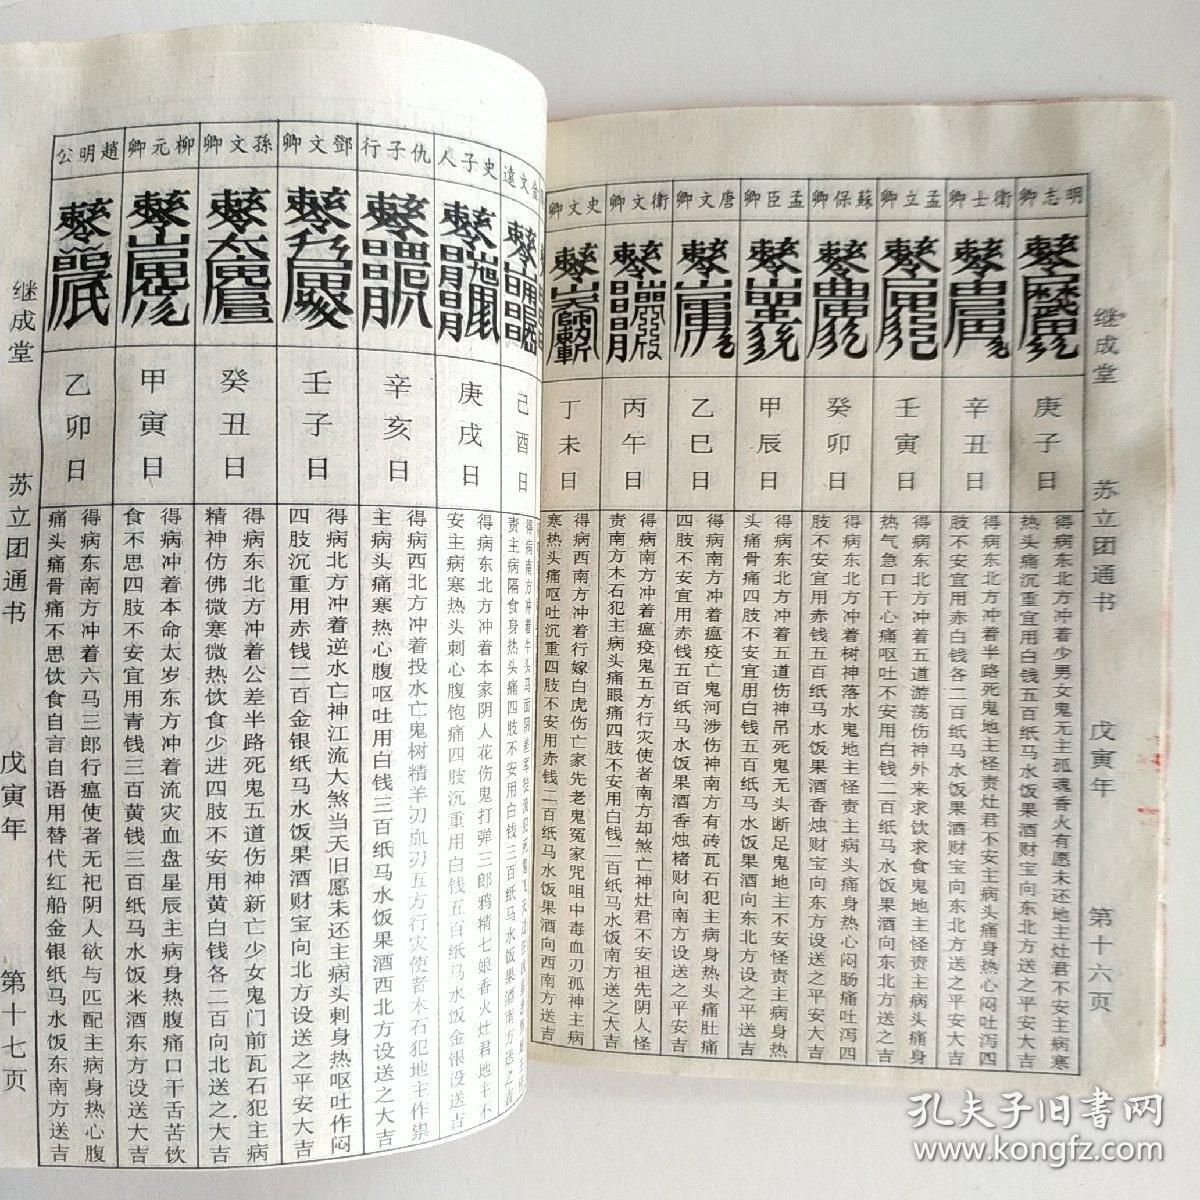 明志卿
衛士卿
孟立卿
蘇保卿
孟臣卿
唐文卿
衛文卿
史文卿
庚子日
辛丑日
壬寅日
癸卯日
甲辰日
乙巳日
丙午日
丁未日
得病东北方冲着少男女鬼无主孤魂香火有愿未还地主灶君不安主病寒
热头痛沉重宜用白钱五百纸马水饭果酒财宝向东北方送之平安大吉
得病东北方冲着半路死鬼地主怪责灶君不安主病头痛身热心闷吐泻四
肢不安宜用赤白钱各二百纸马水饭果酒财宝向东北方送之平安大吉
得病东北方冲着五道游荡伤神外来求饮求食鬼地主怪责主病头痛身
热气急口干心痛呕吐不安用白钱二百纸马水饭果酒向东北方送之大吉
得病东北方冲着树神落水鬼地主怪责主病头痛身热心闷肠痛吐泻四
肢不安宜用赤钱五百纸马水饭果酒香烛财宝向东方设送之平安大吉
得病东北方冲着五道伤神吊死鬼无头断足鬼地主不安怪责主病身热
头痛骨痛四肢不安宜用白钱五百纸马水饭果酒向东北方设之平送吉
得病南方冲着瘟疫亡鬼河涉伤神南方有砖瓦石犯主病身热头痛肚痛
四肢不安宜用赤钱五百纸马水饭果酒香烛楮财向南方设送之平安吉
得病南方冲着瘟疫鬼五方行灾使者南方却煞亡神灶君不安祖先阴人怪
责南方木石犯主病头痛眼痛四肢不安用白钱二百纸马水饭南方送之大吉
得病西南方冲着行嫁白虎伤亡家先老鬼冤家咒咀中毒血刃孤神主病
寒热头痛呕吐沉重四肢不安用赤钱二百纸马水饭果酒向西南方送吉
继成堂 苏立团通书 戊寅年 第十六页
文遠
史子人
仇子行
鄧文卿
孫文卿
柳元卿
趙明公
己酉日
庚戌日
辛亥日
壬子日
癸丑日
甲寅日
乙卯日
责主病隔食身热头痛四肢不安用白钱三百纸马水饭果酒南方送之吉
得病东北方冲着本家阴人花伤鬼打弹三郎鸦精七娘香火灶君地主不
安主病寒热头刺心腹饱痛四肢沉重用白钱五百纸马水饭金银设送吉
得病西北方冲着投水亡鬼树精羊刃血刃五方行灾使者木石犯地主作祟
主病头痛寒热心腹呕吐用白钱三百纸马水饭果酒西北方设送之大吉
得病北方冲着逆水亡神江流大煞当天旧愿未还主病头刺身热呕吐作闷
四肢沉重用赤钱二百金银纸马水饭果酒财宝向北方设送之平安大吉
得病东北方冲着公差半路死鬼五道伤神新亡少女鬼门前瓦石犯主病
精神仿佛微寒微热饮食少进四肢不安用黄白钱各二百向北送之大吉
得病冲着本命太岁东方冲着流灾血盘星辰主病身热腹痛口干舌苦饮
食不思四肢不安宜用青钱三百黄钱三百纸马水饭米酒东方设送大吉
得病东南方冲着六马三郎行瘟使者无祀阴人欲与匹配主病身热心腹
痛头痛骨痛不思饮食自言自语用替代红船金银纸马水饭东南方送吉
继成堂 苏立团通书 戊寅年 第十七页
孔夫子旧书网
www.kongfz.com